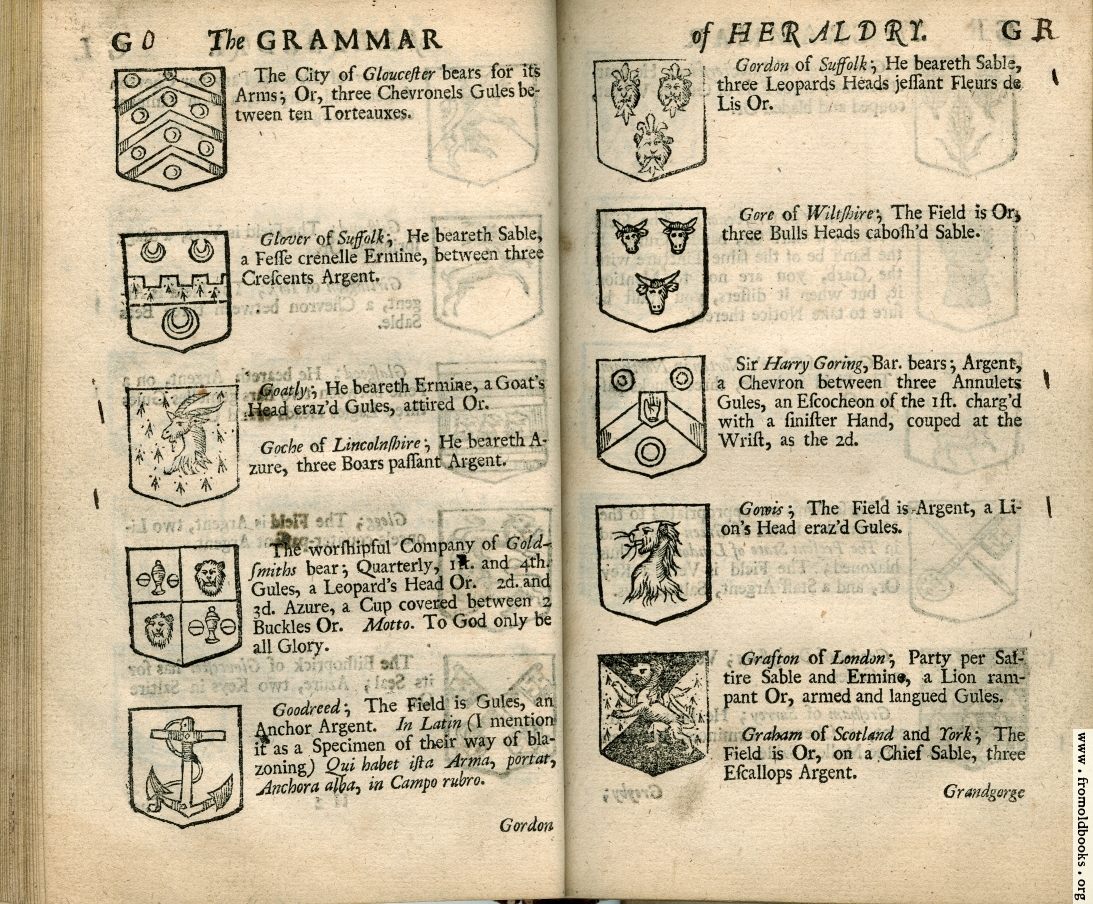 GO The GRAMMAR
The City of Glouceſter bears for its
Arms; Or, three Chevronels Gules be-
tween ten Torteauxes.
Glover of Suffolk; He beareth Sable,
a Feſſe crenelle Ermine, between three
Creſcents Argent.
Goatly; He beareth Ermine, a Goat's
Head eraz'd Gules, attired Or.
Goche of Lincolnſhire; He beareth A-
zure, three Boars paſſant Argent.
The worſhipful Company of Gold-
ſmiths bear; Quarterly, 1ſt. and 4th.
Gules, a Leopard's Head Or. 2d. and
3d. Azure, a Cup covered between 2
Buckles Or. Motto. To God only be
all Glory.
Goodreed; The Field is Gules, an
Anchor Argent. In Latin (I mention
it as a Specimen of their way of bla-
zoning) Qui habet iſta Arma, portat,
Anchora alba, in Campo rubro.
Gordon
of HERALDRY. GR
Gordon of Suffolk; He beareth Sable,
three Leopards Heads jeſſant Fleurs de
Lis Or.
Gore of Wiltſhire; The Field is Or,
three Bulls Heads caboſh'd Sable.
Sir Harry Goring, Bar. bears; Argent,
a Chevron between three Annulets
Gules, an Eſcocheon of the 1ſt. charg'd
with a ſiniſter Hand, couped at the
Wriſt, as the 2d.
Gowis; The Field is Argent, a Li-
on's Head eraz'd Gules.
Grafton of London; Party per Sal-
tire Sable and Ermine, a Lion ram-
pant Or, armed and langued Gules.
Graham of Scotland and York; The
Field is Or, on a Chief Sable, three
Eſcallops Argent.
Grandgorge
www.fromoldbooks.org